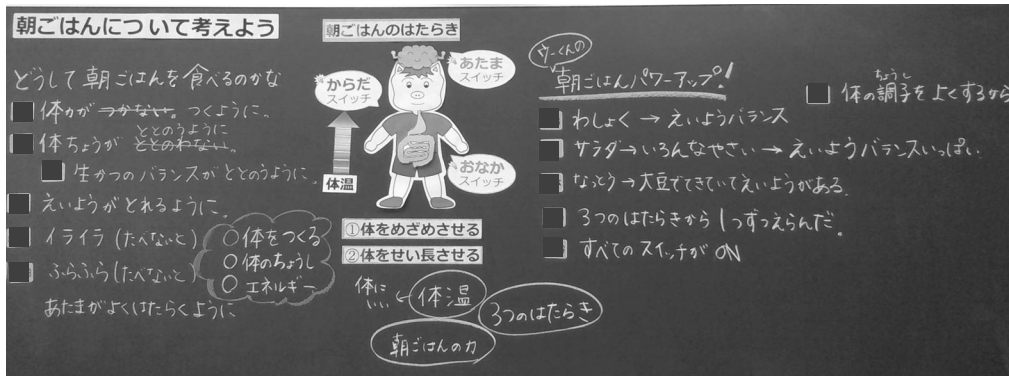 朝ごはんについて考えよう
どうして朝ごはんを食べるのかな
体力が つかない。つくように。
体ちょうが ととのわない。
ととのうように
生かつのバランスがととのうように
えいようがとれるように。
イライラ(たべないと)
ふらふら(たべないと)
あたまがよくはたらくように
○体をつくる
○体のちょうし
○エネルギー
朝ごはんのはたらき
あたま
スイッチ
からだ
スイッチ
おなか
スイッチ
体温
①体をめざめさせる
②体をせい長させる
体に
いい
←体温
3つのはたらき
朝ごはんの力
ウーくんの
朝ごはんパワーアップ!
わしょく→えいようバランス
サラダ→いろんなやさい→えいようバランスいっぱい.
なっとう→大豆でできていてえいようがある.
3つのはたらきから1つずつえらんだ。
すべてのスイッチがON
ちょうし
体の調子をよくするから